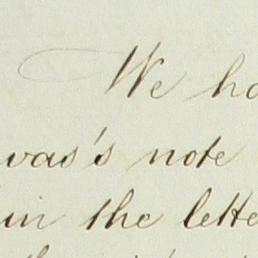 We ha
was's note
in the lette